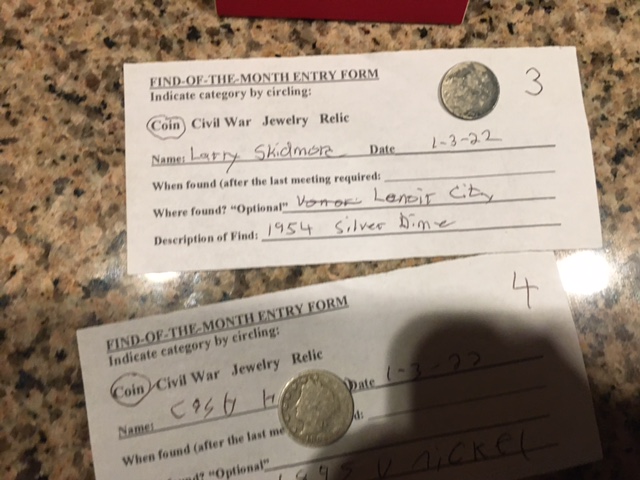 FIND-OF-THE-MONTH ENTRY FORM
Indicate category by circling:
3
Coin Civil War Jewelry Relic
Name: Larry Skidmore Date 1-3-22
When found (after the last meeting required:
Where found? "Optional" Lenoir City
Description of Find: 1954 Silver Dime
4
FIND-OF-THE-MONTH ENTRY FORM
Indicate category by circling:
Coin Civil War Jewelry Relic
Name: CASH H Date 1-3-22
When found (after the last me d:
nd? "Optional"
V nickel